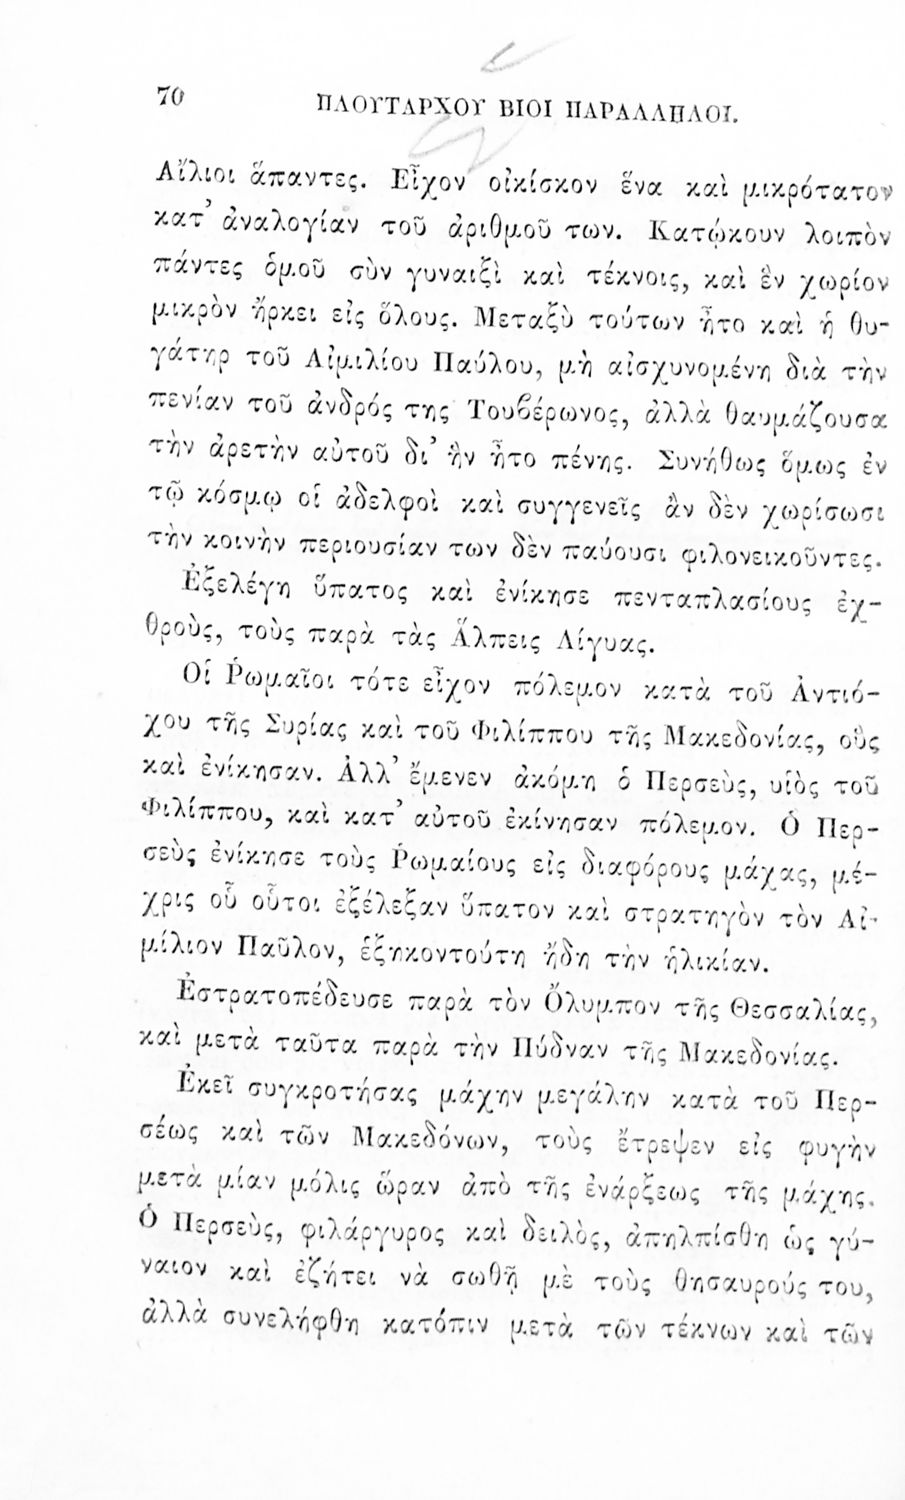 70
ΠΛΟΥΤΑΡΧΟΥ ΒΙΟΙ ΠΑΡΑΛΛΗΛΟΙ.
Αἴλιοι ἅπαντες. Εἶχον οἰκίσκον ἕνα καὶ μικρότατον
κατ' ἀναλογίαν τοῦ ἀριθμοῦ των. Κατῴκουν λοιπὸν
πάντες ὁμοῦ σὺν γυναιξὶ καὶ τέκνοις, καὶ ἓν χωρίον
μικρὸν ἤρκει εἰς ὅλους. Μεταξὺ τούτων ἦτο καὶ ἡ θυ-
γάτηρ τοῦ Αἰμιλίου Παύλου, μὴ αἰσχυνομένη διὰ τὴν
πενίαν τοῦ ἀνδρός της Τουβέρωνος, ἀλλὰ θαυμάζουσα
τὴν ἀρετὴν αὐτοῦ δι' ἣν ἦτο πένης. Συνήθως ὅμως ἐν
τῷ κόσμῳ οἱ ἀδελφοὶ καὶ συγγενεῖς ἂν δὲν χωρίσωσι
τὴν κοινὴν περιουσίαν των δὲν παύουσι φιλονεικοῦντες.
Ἐξελέγη ὕπατος καὶ ἐνίκησε πενταπλασίους ἐχ-
θροὺς, τοὺς παρὰ τὰς Ἄλπεις Λίγυας.
Οἱ Ῥωμαῖοι τότε εἶχον πόλεμον κατὰ τοῦ Ἀντιό-
χου τῆς Συρίας καὶ τοῦ Φιλίππου τῆς Μακεδονίας, οὓς
καὶ ἐνίκησαν. Ἀλλ' ἔμενεν ἀκόμη ὁ Περσεὺς, υἱὸς τοῦ
Φιλίππου, καὶ κατ' αὐτοῦ ἐκίνησαν πόλεμον. Ὁ Περ-
σεὺς ἐνίκησε τοὺς Ῥωμαίους εἰς διαφόρους μάχας, μέ-
χρις οὗ οὗτοι ἐξέλεξαν ὕπατον καὶ στρατηγὸν τὸν Αἰ-
μίλιον Παῦλον, ἑξηκοντούτη ἤδη τὴν ἡλικίαν.
Ἐστρατοπέδευσε παρὰ τὸν Ὄλυμπον τῆς Θεσσαλίας,
καὶ μετὰ ταῦτα παρὰ τὴν Πύδναν τῆς Μακεδονίας.
Ἐκεῖ συγκροτήσας μάχην μεγάλην κατὰ τοῦ Περ-
σέως καὶ τῶν Μακεδόνων, τοὺς ἔτρεψεν εἰς φυγὴν
μετὰ μίαν μόλις ὥραν ἀπὸ τῆς ἐνάρξεως τῆς μάχης.
Ὁ Περσεὺς, φιλάργυρος καὶ δειλὸς, ἀπηλπίσθη ὡς γύ-
ναιον καὶ ἐζήτει νὰ σωθῇ μὲ τοὺς θησαυρούς του,
ἀλλὰ συνελήφθη κατόπιν μετὰ τῶν τέκνων καὶ τῶν